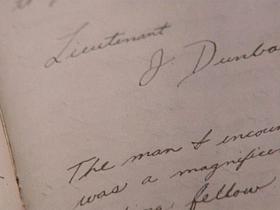 Lieutenant
J Dunba
The man I encoun
was a magnifice
fellow